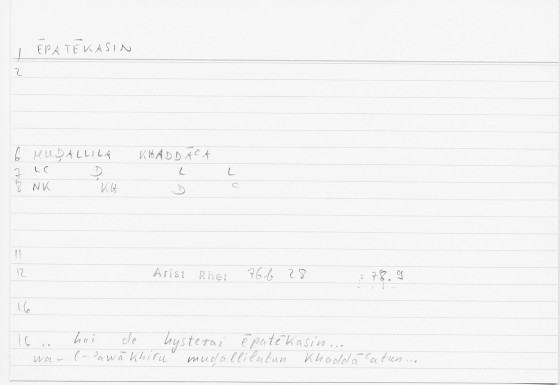 1 ĒPATĒKASIN
2
6 MUḌALLILA KHADDĀʿA
7 LC Ḍ L L
8 NK KH D ʿ
11
12 Arist Rhet 76b 28 : 78.9
16
16 .. hai de hysterai ēpatēkasin...
wa-l-ʾawākhiru muḍallilatun khaddāʿatun...